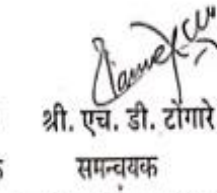 श्री. एच. डी. टोंगारे
समन्वयक